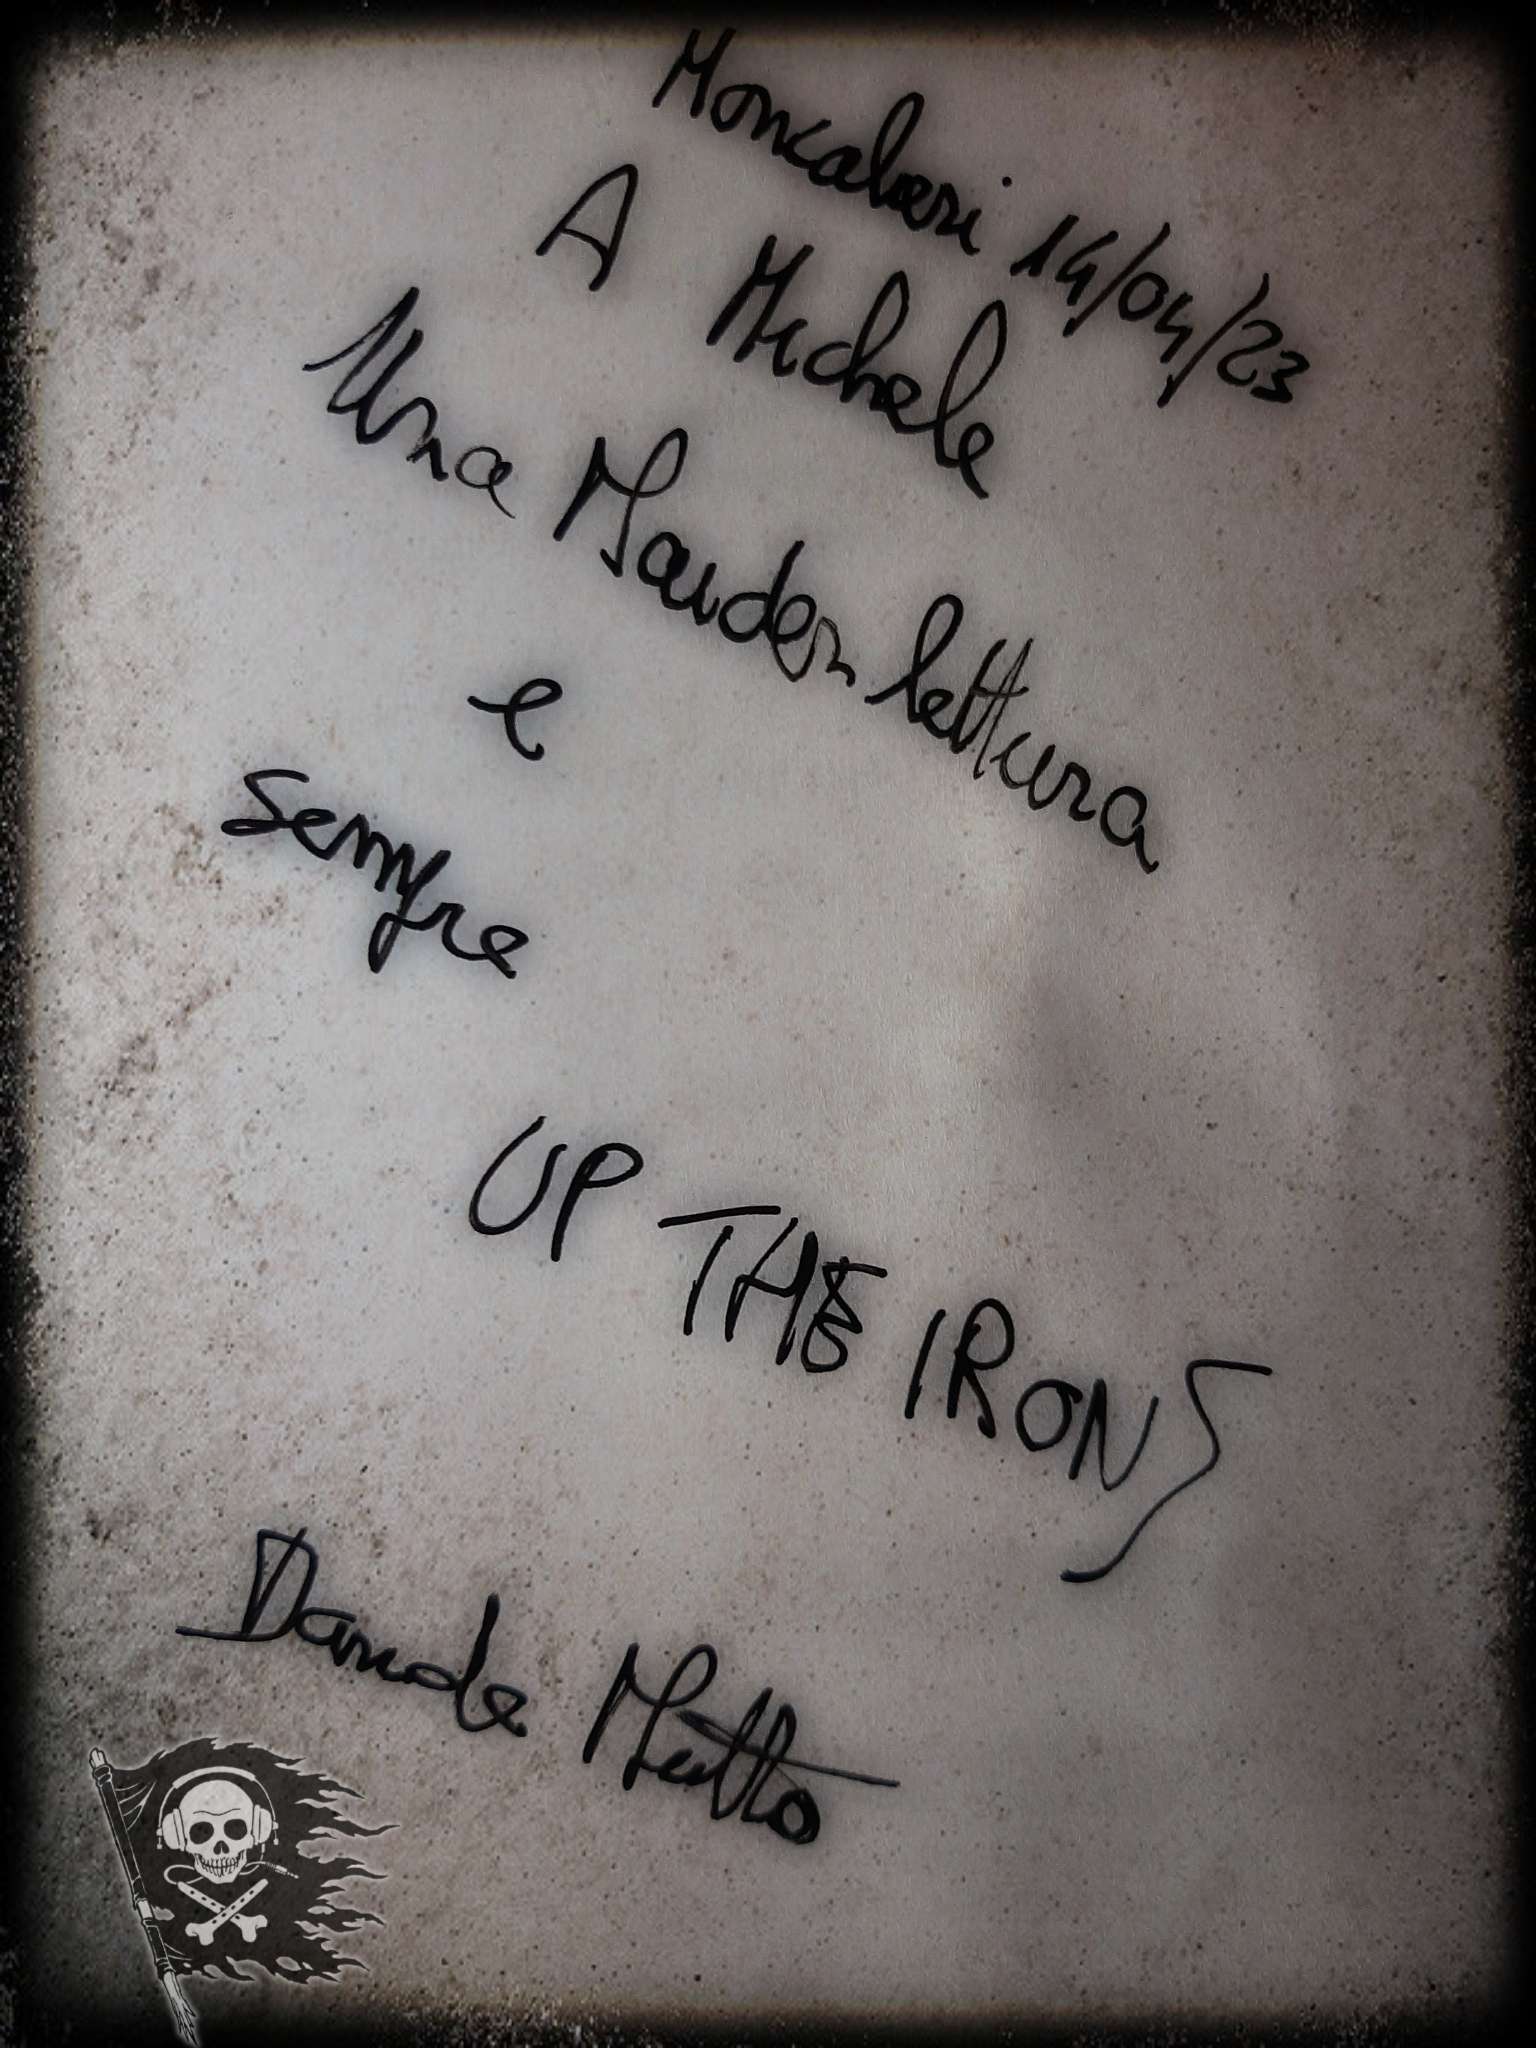 Moncalieri 14/04/23
A Michele
Una Maiden lettura
e
sempre
UP THE IRONS
Daniele